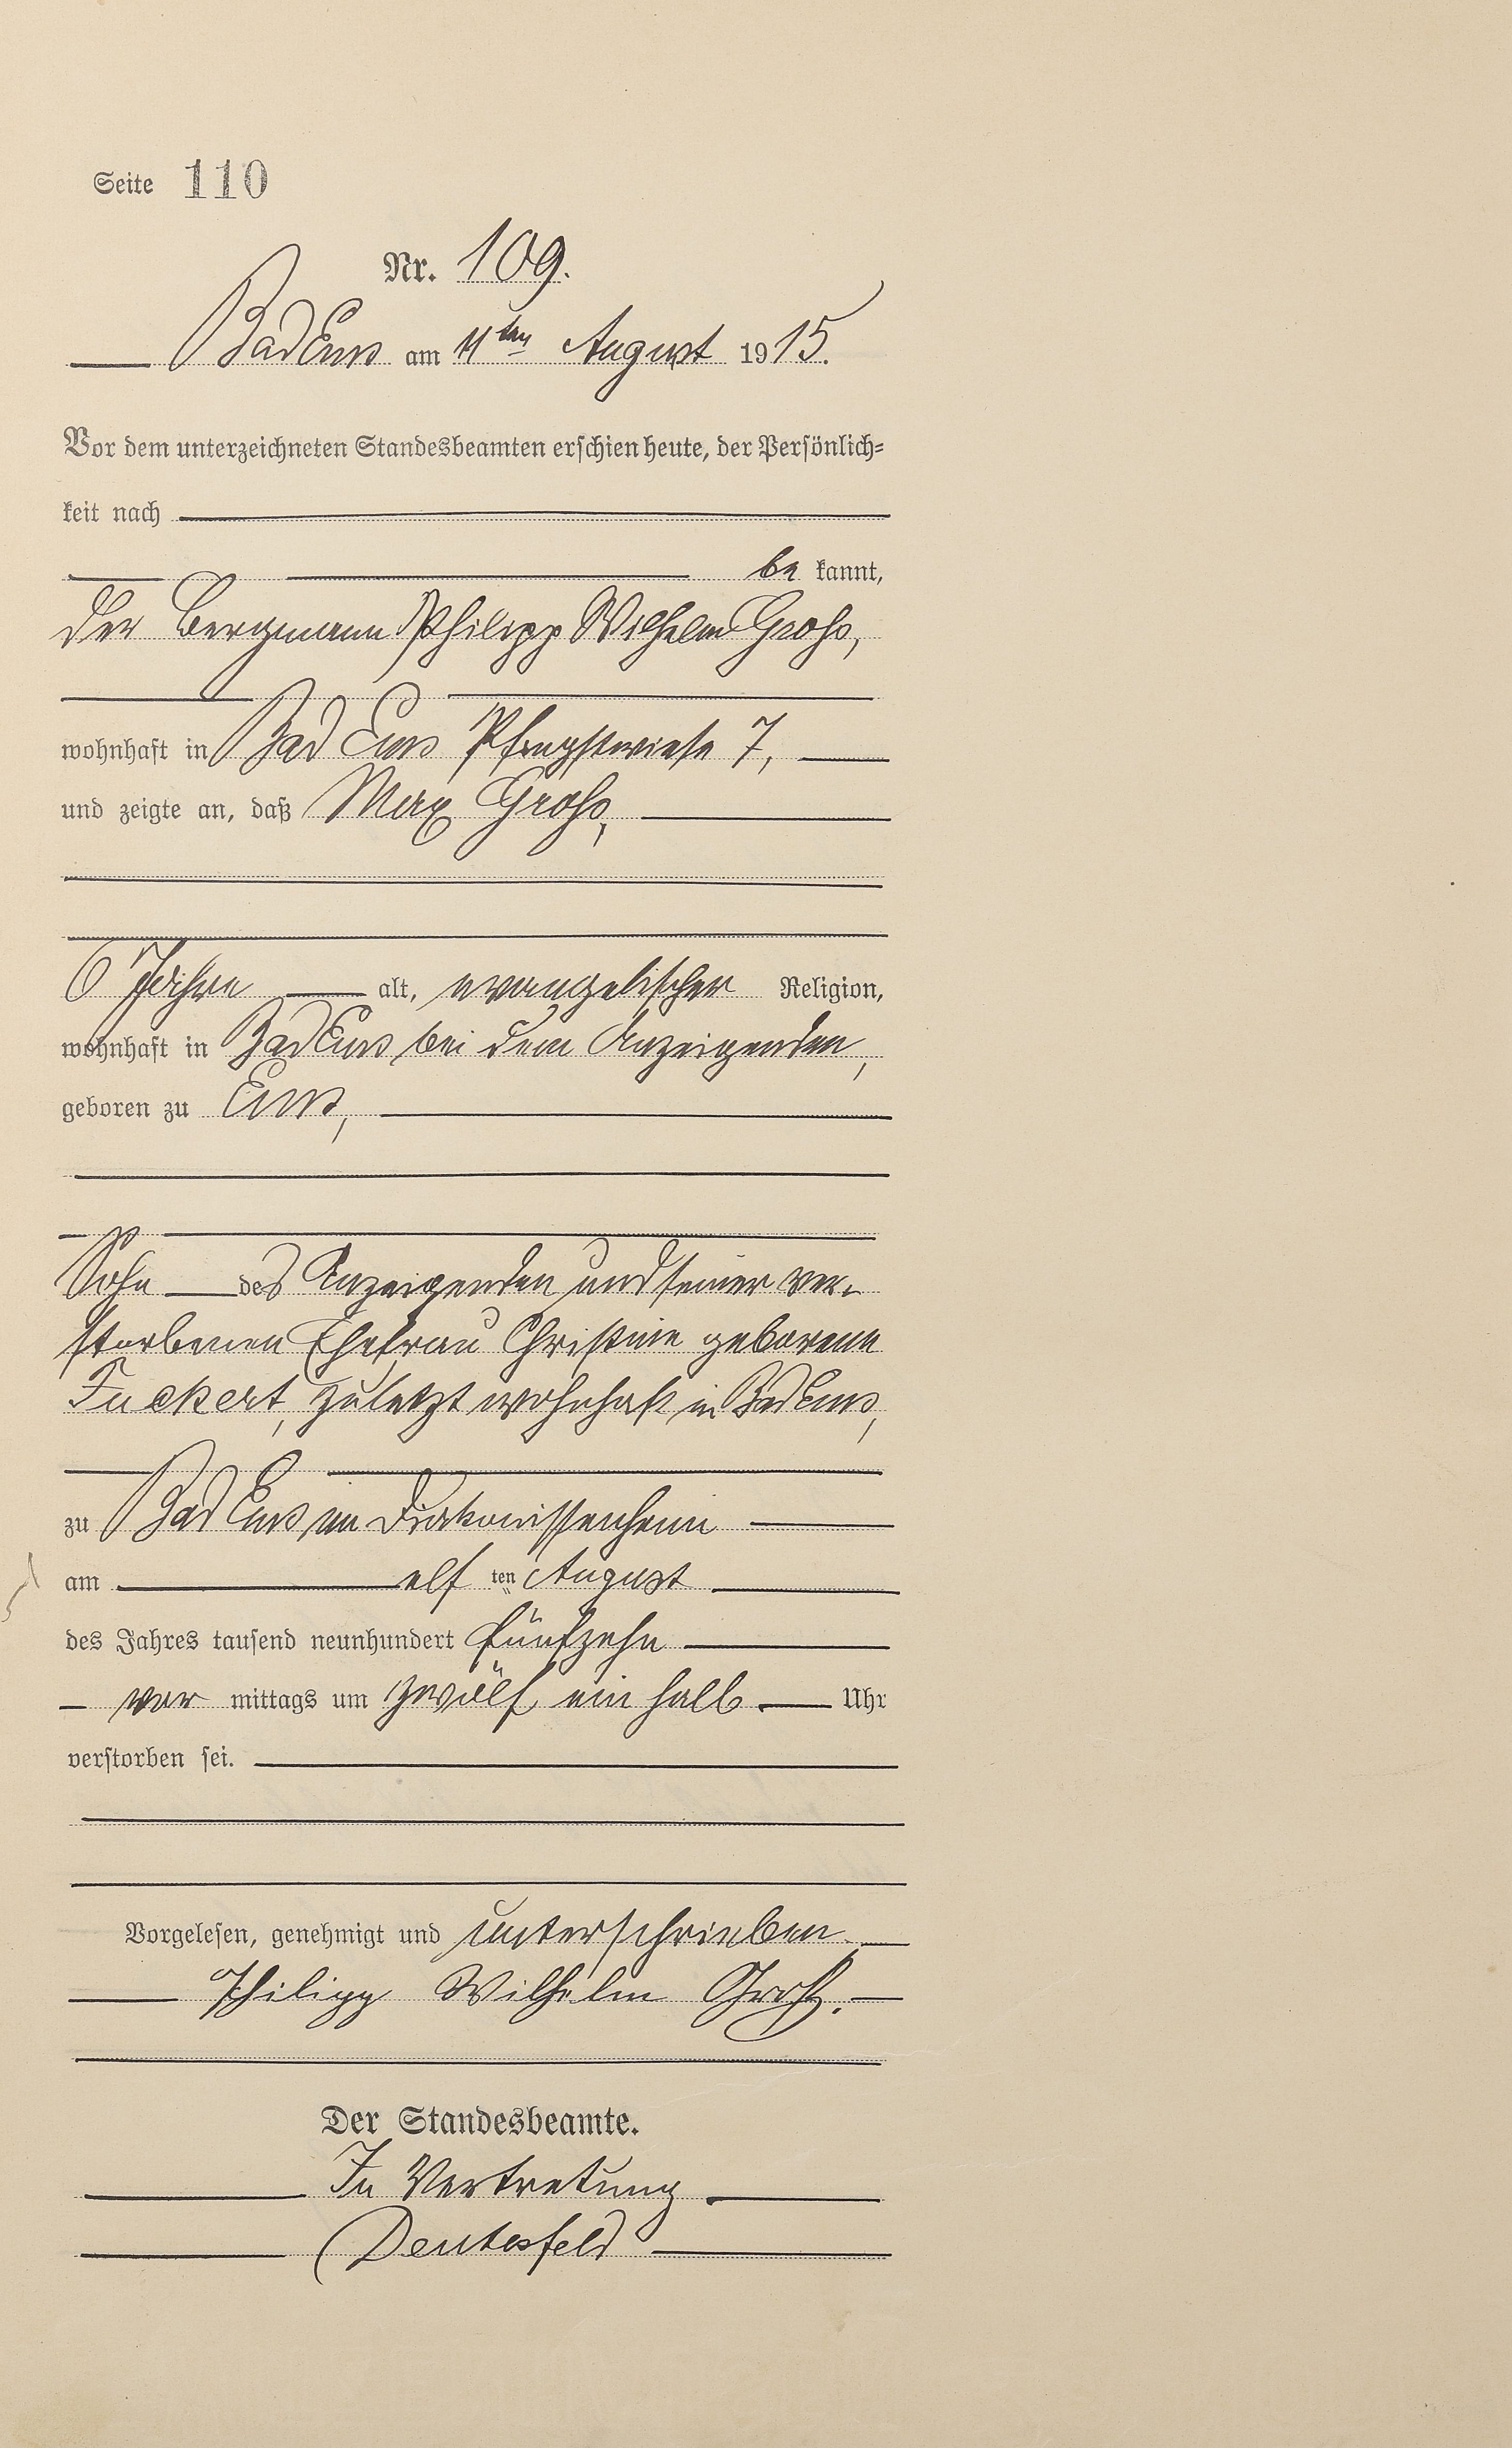 Seite 110
Nr. 109.
Bad Ems am 11ten August 1915.
Vor dem unterzeichneten Standesbeamten erschien heute, der Persönlich=
keit nach
be kannt,
der Bergmann Philipp Wilhelm Groß,
wohnhaft in Bad Ems Pfingstwiese 7,
und zeigte an, daß Max Groß,
6 Jahre alt, evangelischer Religion,
wohnhaft in Bad Ems bei dem Anzeigenden,
geboren zu Ems,
Sohn des Anzeigenden und seiner ver-
storbenen Ehefrau Christine geborene
Fuckert, zuletzt wohnhaft in Bad Ems,
zu Bad Ems im Diakonissenheim
am elf ten August
des Jahres tausend neunhundert fünfzehn
vor mittags um zwölf ein halb Uhr
verstorben sei.
Vorgelesen, genehmigt und unterschrieben.
Philipp Wilhelm Groß.
Der Standesbeamte.
In Vertretung